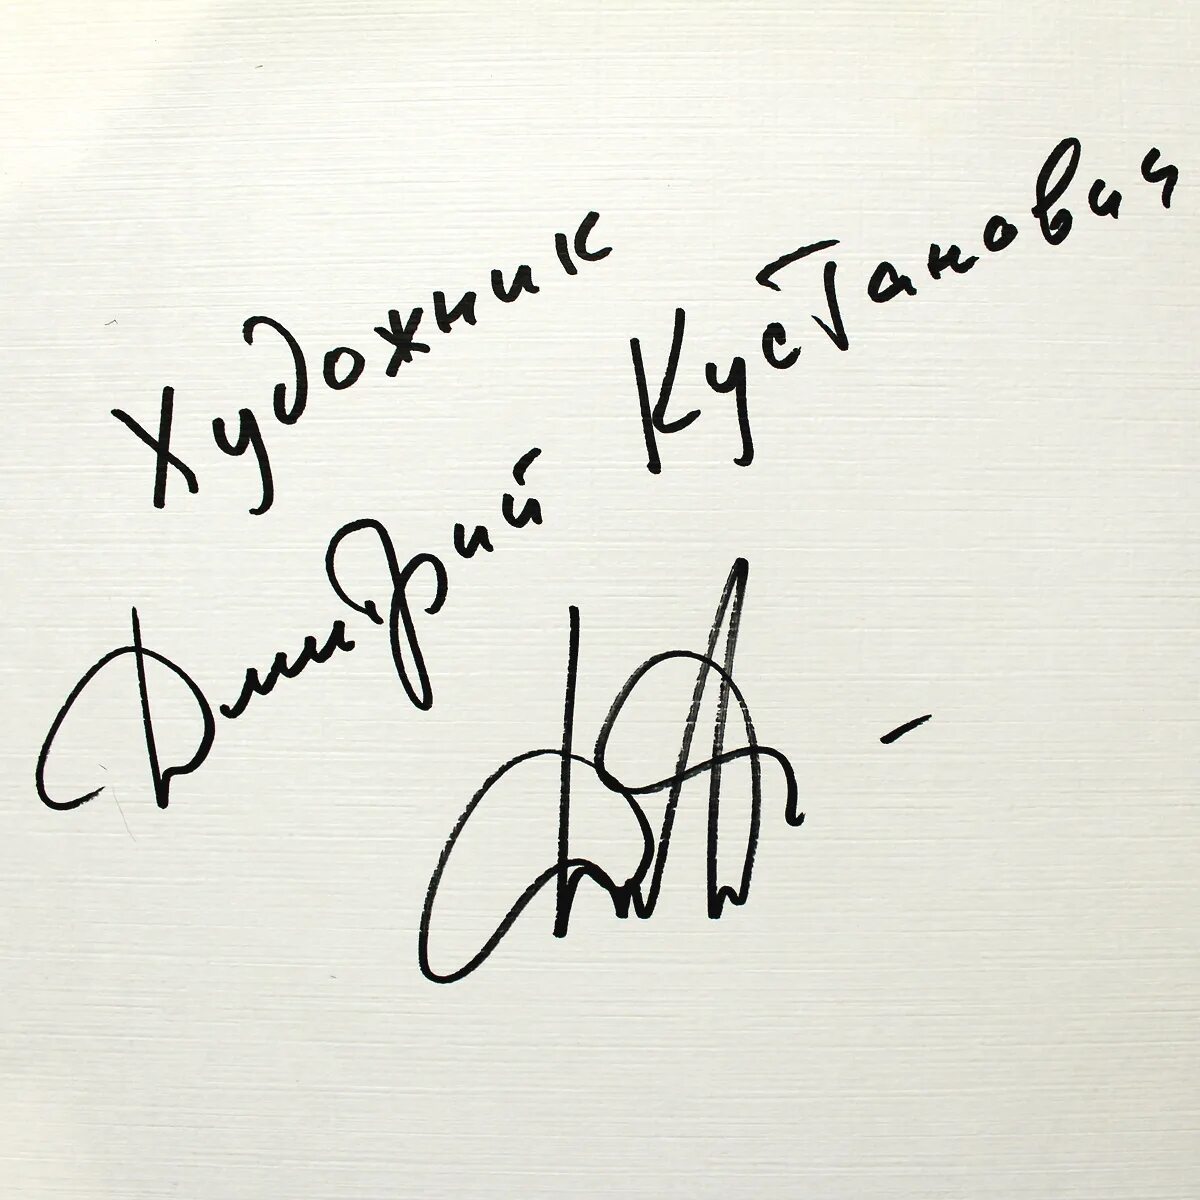 Художник
Дмитрий Кустанович